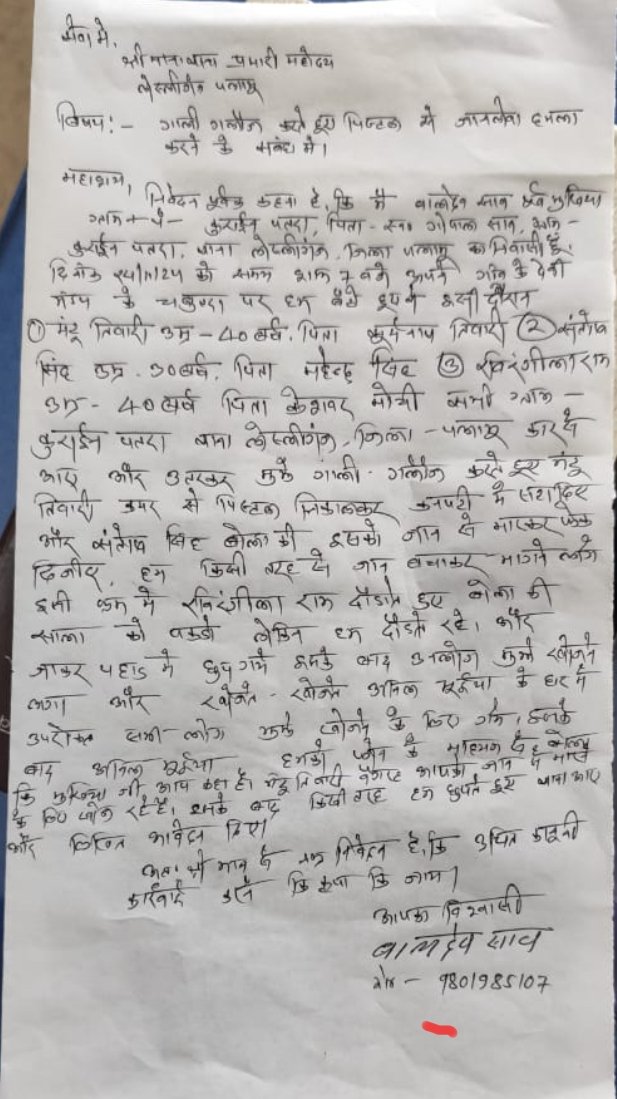 सेवा में,
श्रीमान थाना प्रभारी महोदय
लेस्लीगंज पलामू
विषय:- गाली गलौज करते हुए पिस्टल से जानलेवा हमला
करने के संबंध में।
महाशय,
निवेदन पूर्वक कहना है, कि मैं बालदेव साव पूर्व मुखिया
ग्राम + पो- कुराईन पतरा, पिता- स्व० गोपाल साव, ग्राम-
कुराईन पतरा, थाना लेस्लीगंज, जिला पलामू का निवासी हूँ।
दिनांक को समय शाम 7 बजे अपने गाँव के देवी
मंडप के चबुतरा पर हम बैठे हुए थे इसी दौरान
① मंटू तिवारी उम्र - 40 वर्ष. पिता तिवारी ② संतोष
सिंह उम्र. 30 वर्ष. पिता महेन्द्र सिंह ③ रविरंगीला राम
उम्र - 40 वर्ष पिता केशवर मोची सभी ग्राम -
कुराईन पतरा थाना लेस्लीगंज, जिला - पलामू कार से
आए और उतरकर मुझे गाली - गलौज करते हुए मंटू
तिवारी कमर से पिस्टल निकालकर कनपटी में सटा दिए
और संतोष सिंह बोला की इसको जान से मारकर फेंक
दिजीए, हम किसी तरह से जान बचाकर भागने लगे
इसी क्रम में रविरंगीला राम दौड़ाते हुए बोला की
साला को पकडो लेकिन हम दौड़ते रहे। और
जाकर पहाड में छुप गये इसके बाद उनलोग मुझे खोजने
लगा और खोजते - खोजते अनिल भुईया के घर में
उपरोक्त सभी लोग मुझे खोजने के लिए गये, इसके
बाद अनिल भुईया हमको फोन के माध्यम से बोला
कि मुखिया जी आप कहा है। मंटू तिवारी वगैरह आपको जान से मारने
के लिए खोज रहे है। इसके बाद किसी तरह हम छुपते हुए थाना आए
और लिखित आवेदन दिए।
अतः श्री मान से नम्र निवेदन है, कि उचित कानूनी
कार्रवाई करने कि कृपा कि जाय।
आपका विश्वासी
बालदेव साव
मो० - 9801985107